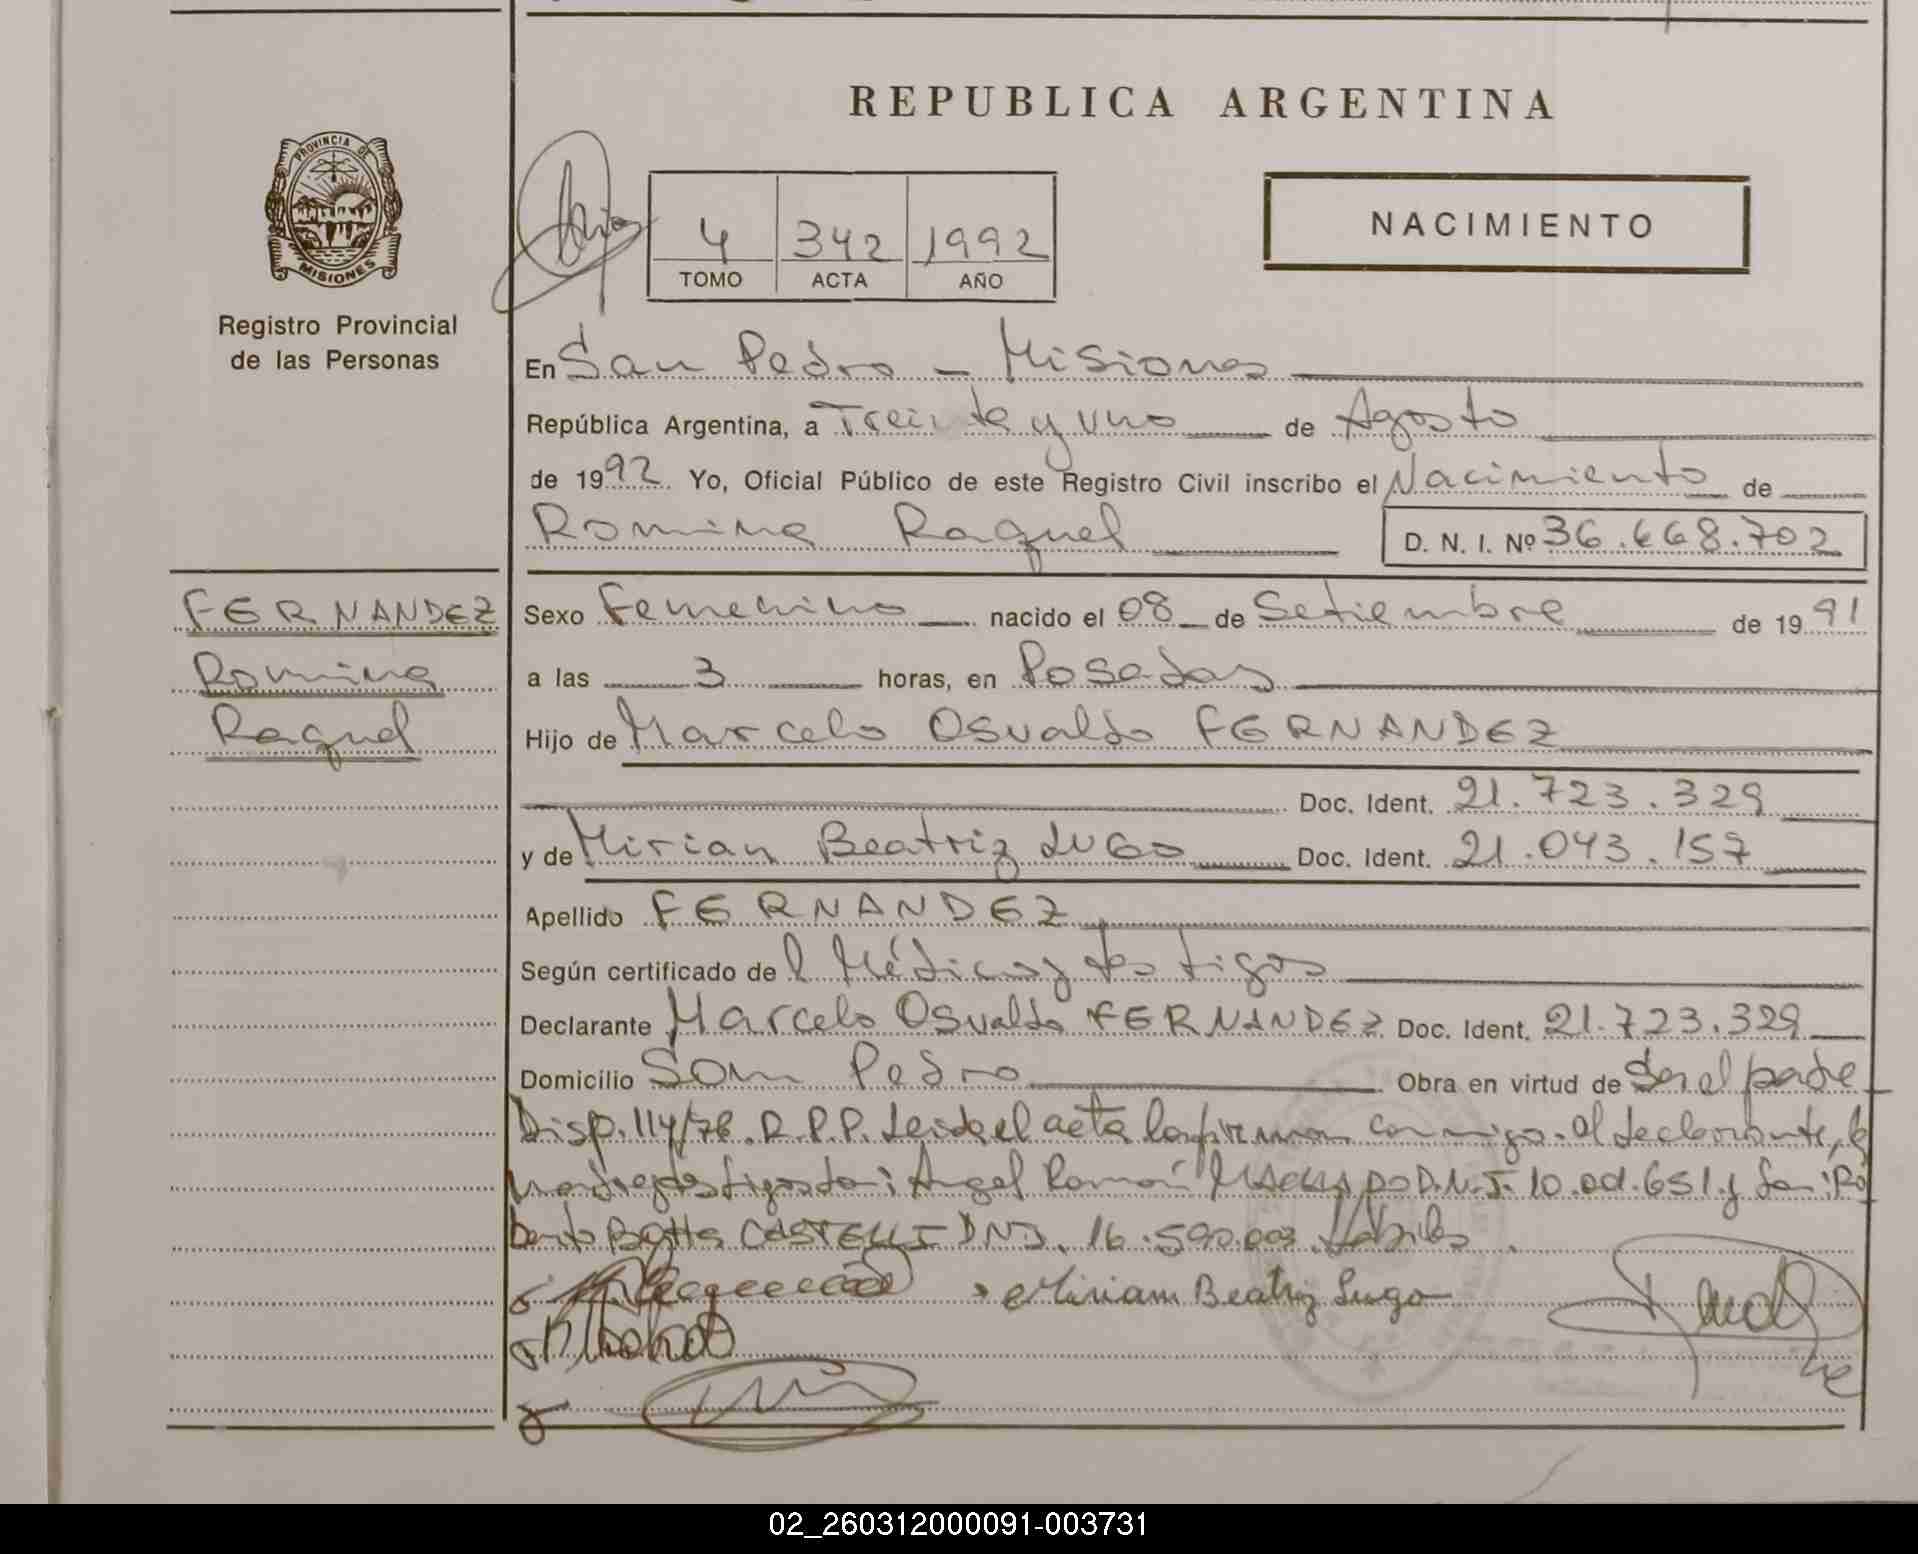 REPUBLICA ARGENTINA
PROVINCIA DE
MISIONES
Registro Provincial
de las Personas
4 342 1992
TOMO ACTA AÑO
NACIMIENTO
En San Pedro - Misiones
República Argentina, a Treinta y uno de Agosto
de 1992. Yo, Oficial Público de este Registro Civil inscribo el Nacimiento de
Romina Raquel D. N. I. Nº 36.668.702
FERNANDEZ
Romina
Raquel
Sexo Femenino nacido el 08 de Setiembre de 1991
a las 3 horas, en Posadas
Hijo de Marcelo Osvaldo FERNANDEZ
Doc. Ident. 21.723.329
y de Mirian Beatriz LUGO Doc. Ident. 21.043.157
Apellido FERNANDEZ
Según certificado de l Médico y testigos
Declarante Marcelo Osvaldo FERNANDEZ Doc. Ident. 21.723.329
Domicilio San Pedro Obra en virtud de Ser el padre
Disp. 114/78. R.P.P. Leida el acta la firman conmigo el declarante, la
madre y testigos Angel Ramón D.N.I. 10. .651 y
CASTELLI DNI. 16.590.003. hábiles.
Miriam Beatriz Lugo
02_260312000091-003731